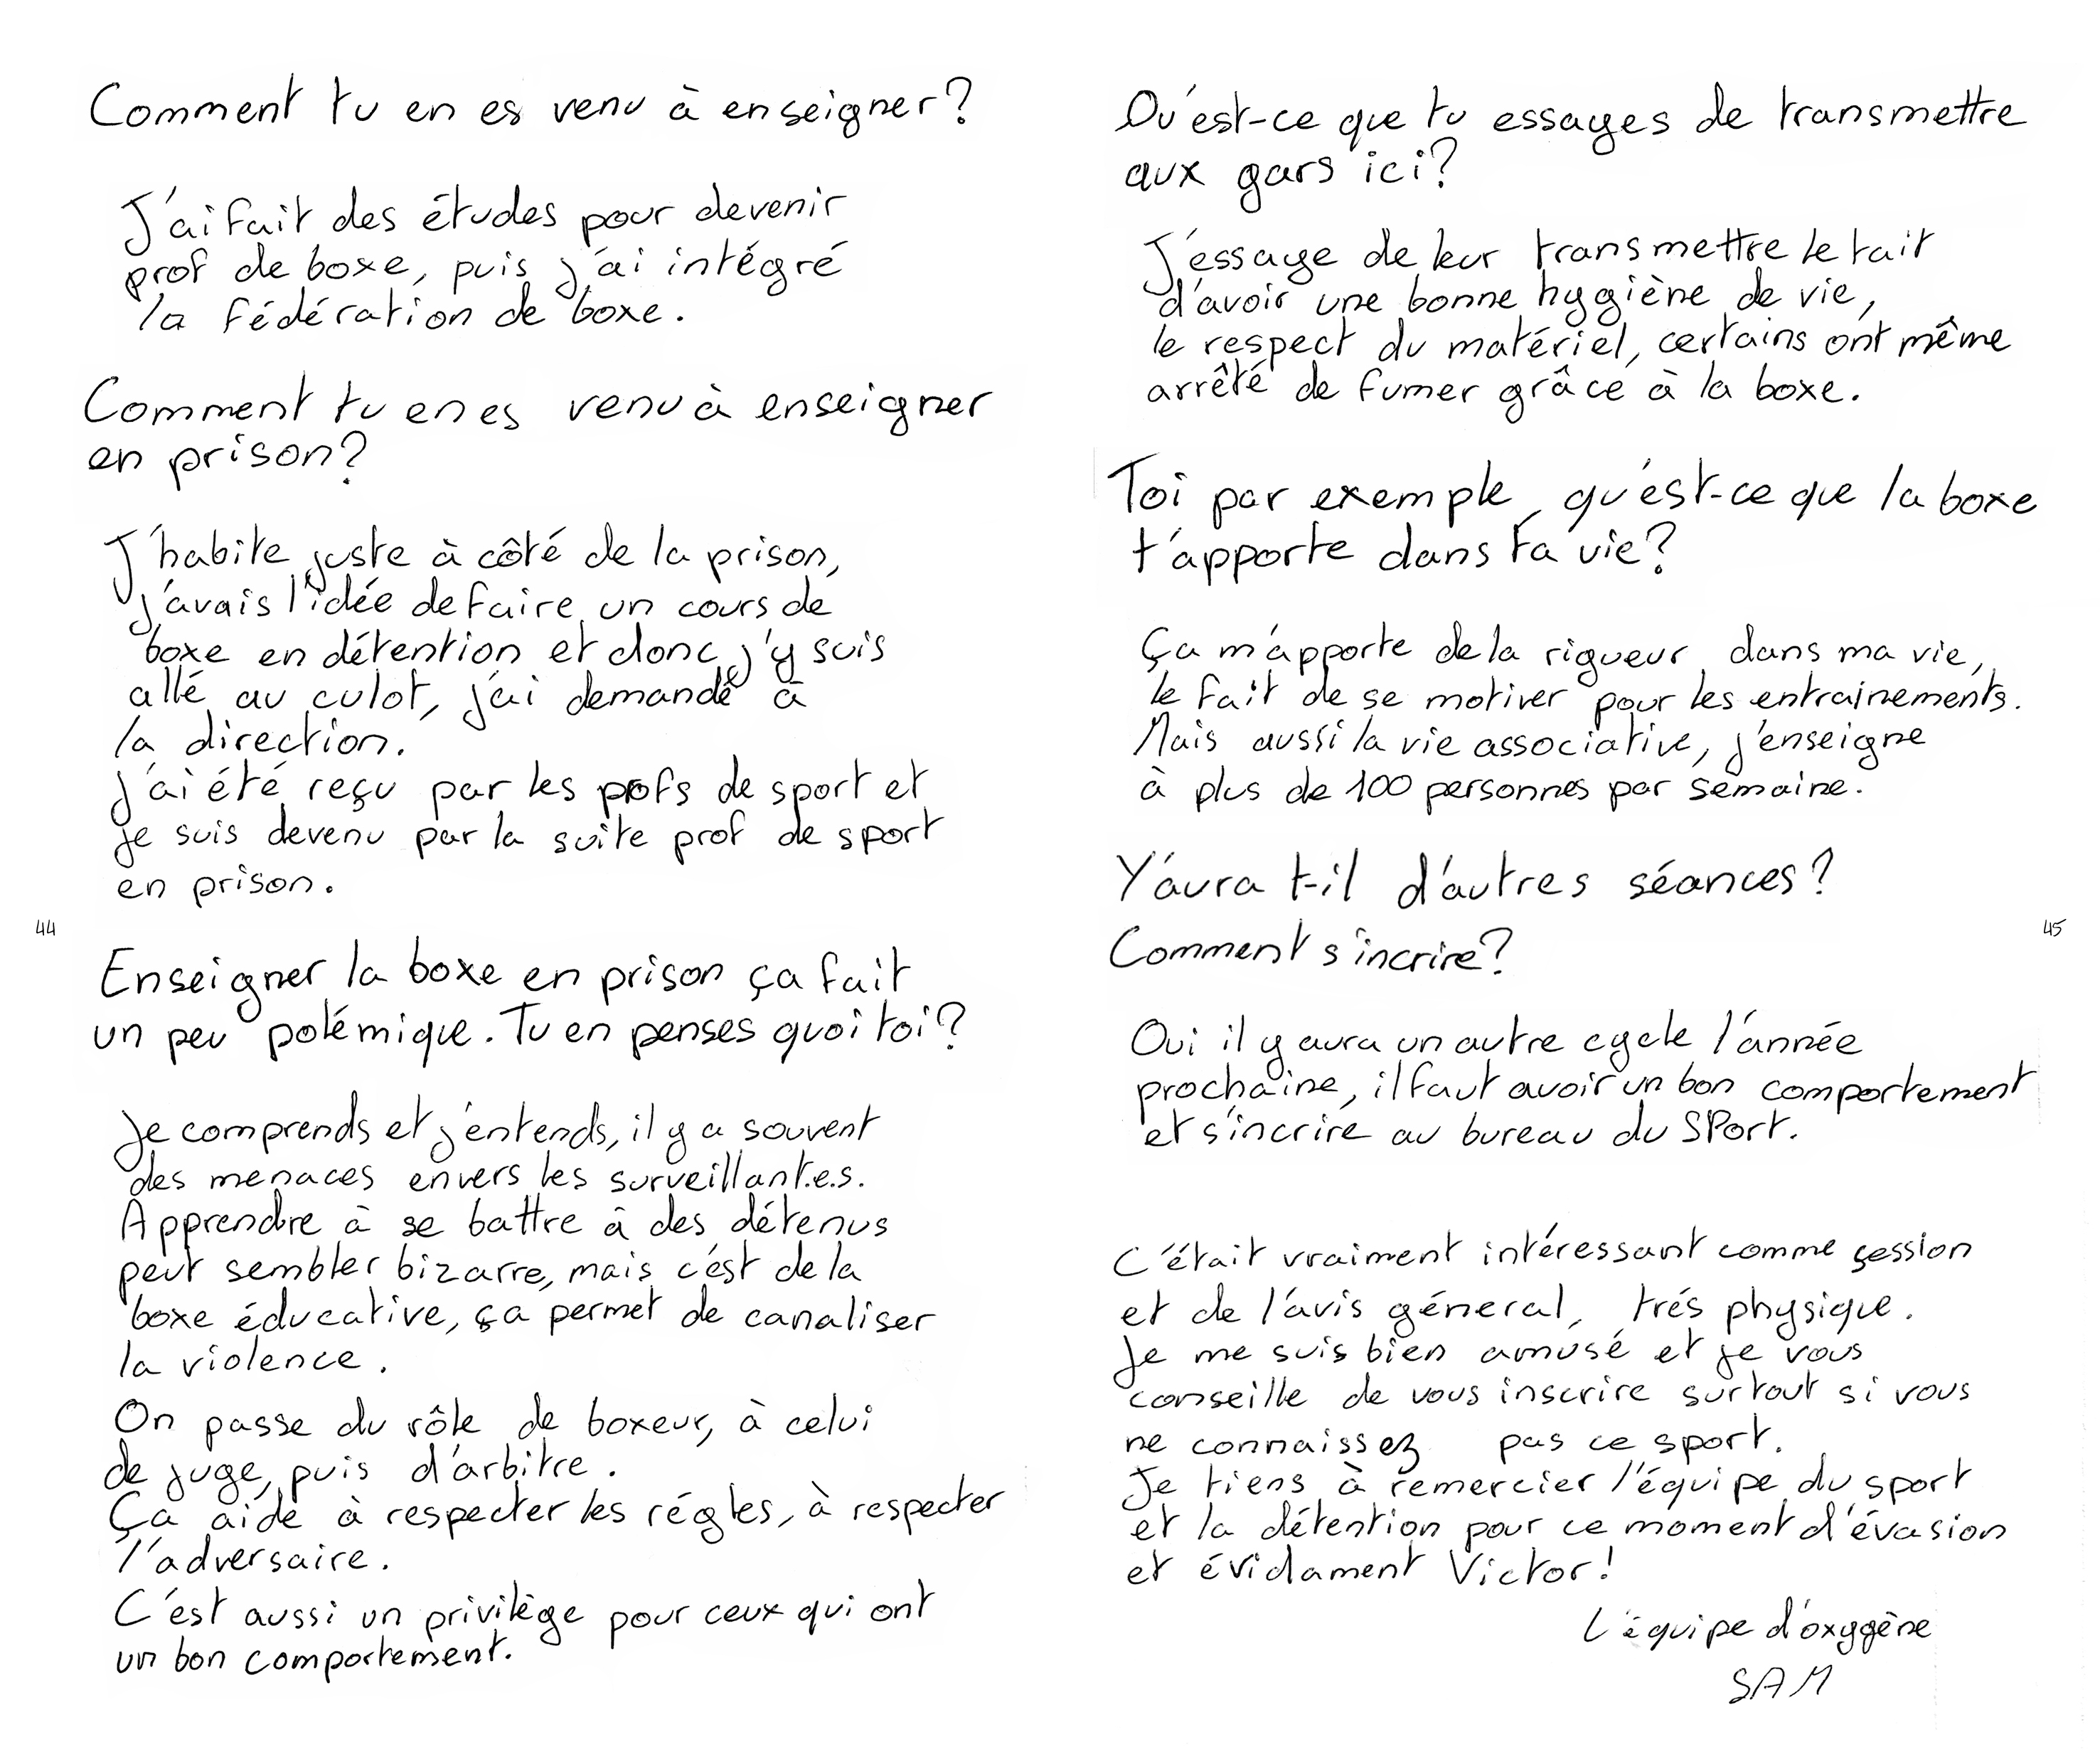 Comment tu en es venu à enseigner?
J'ai fait des études pour devenir
prof de boxe, puis j'ai intégré
la fédération de boxe.
Comment tu en es venu à enseigner
en prison?
J'habite juste à côté de la prison,
j'avais l'idée de faire un cours de
boxe en détention et donc j'y suis
allé au culot, j'ai demandé à
la direction.
j'ai été reçu par les profs de sport et
je suis devenu par la suite prof de sport
en prison.
44
Enseigner la boxe en prison ça fait
un peu polémique. Tu en penses quoi toi?
Je comprends et j'entends, il y a souvent
des menaces envers les surveillant.e.s.
Apprendre à se battre à des détenus
peut sembler bizarre, mais c'est de la
boxe éducative, ça permet de canaliser
la violence.
On passe du rôle de boxeur, à celui
de juge, puis d'arbitre.
Ça aide à respecter les régles, à respecter
l'adversaire.
C'est aussi un privilège pour ceux qui ont
un bon comportement.
Qu'est-ce que tu essayes de transmettre
aux gars ici?
J'essaye de leur transmettre le fait
d'avoir une bonne hygiène de vie,
le respect du matériel, certains ont même
arrêté de fumer grâce à la boxe.
Toi par exemple, qu'est-ce que la boxe
t'apporte dans ta vie?
Ça m'apporte de la rigueur dans ma vie,
le fait de se motiver pour les entrainements.
Mais aussi la vie associative, j'enseigne
à plus de 100 personnes par semaine.
Y'aura t-il d'autres séances?
Comment s'incrire?
45
Oui il y aura un autre cycle l'année
prochaine, il faut avoir un bon comportement
et s'incrire au bureau du SPort.
C'était vraiment intéressant comme session
et de l'avis géneral, trés physique.
Je me suis bien amusé et je vous
conseille de vous inscrire surtout si vous
ne connaissez pas ce sport.
Je tiens à remercier l'équipe du sport
et la détention pour ce moment d'évasion
et évidament Victor!
L'équipe d'oxygène
SAM